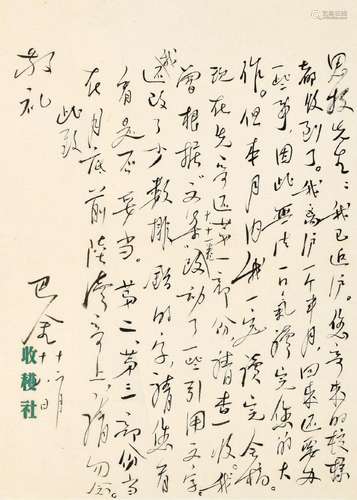 先生：我已返沪。您寄来的校样
都收到了。我离沪一个半月，回来还要办
一些事，因此无法一口气读完您的大
作。但本月内我一定读完全稿。
现在先寄还第一部份，请查收。我
曾根据《文集》改动了一些引用文字
还改了少数排错的字，请您看
看是否妥当。第二、第三部份当
在月底前陆续寄上，请勿念。
此致
敬礼
巴金
收穫社